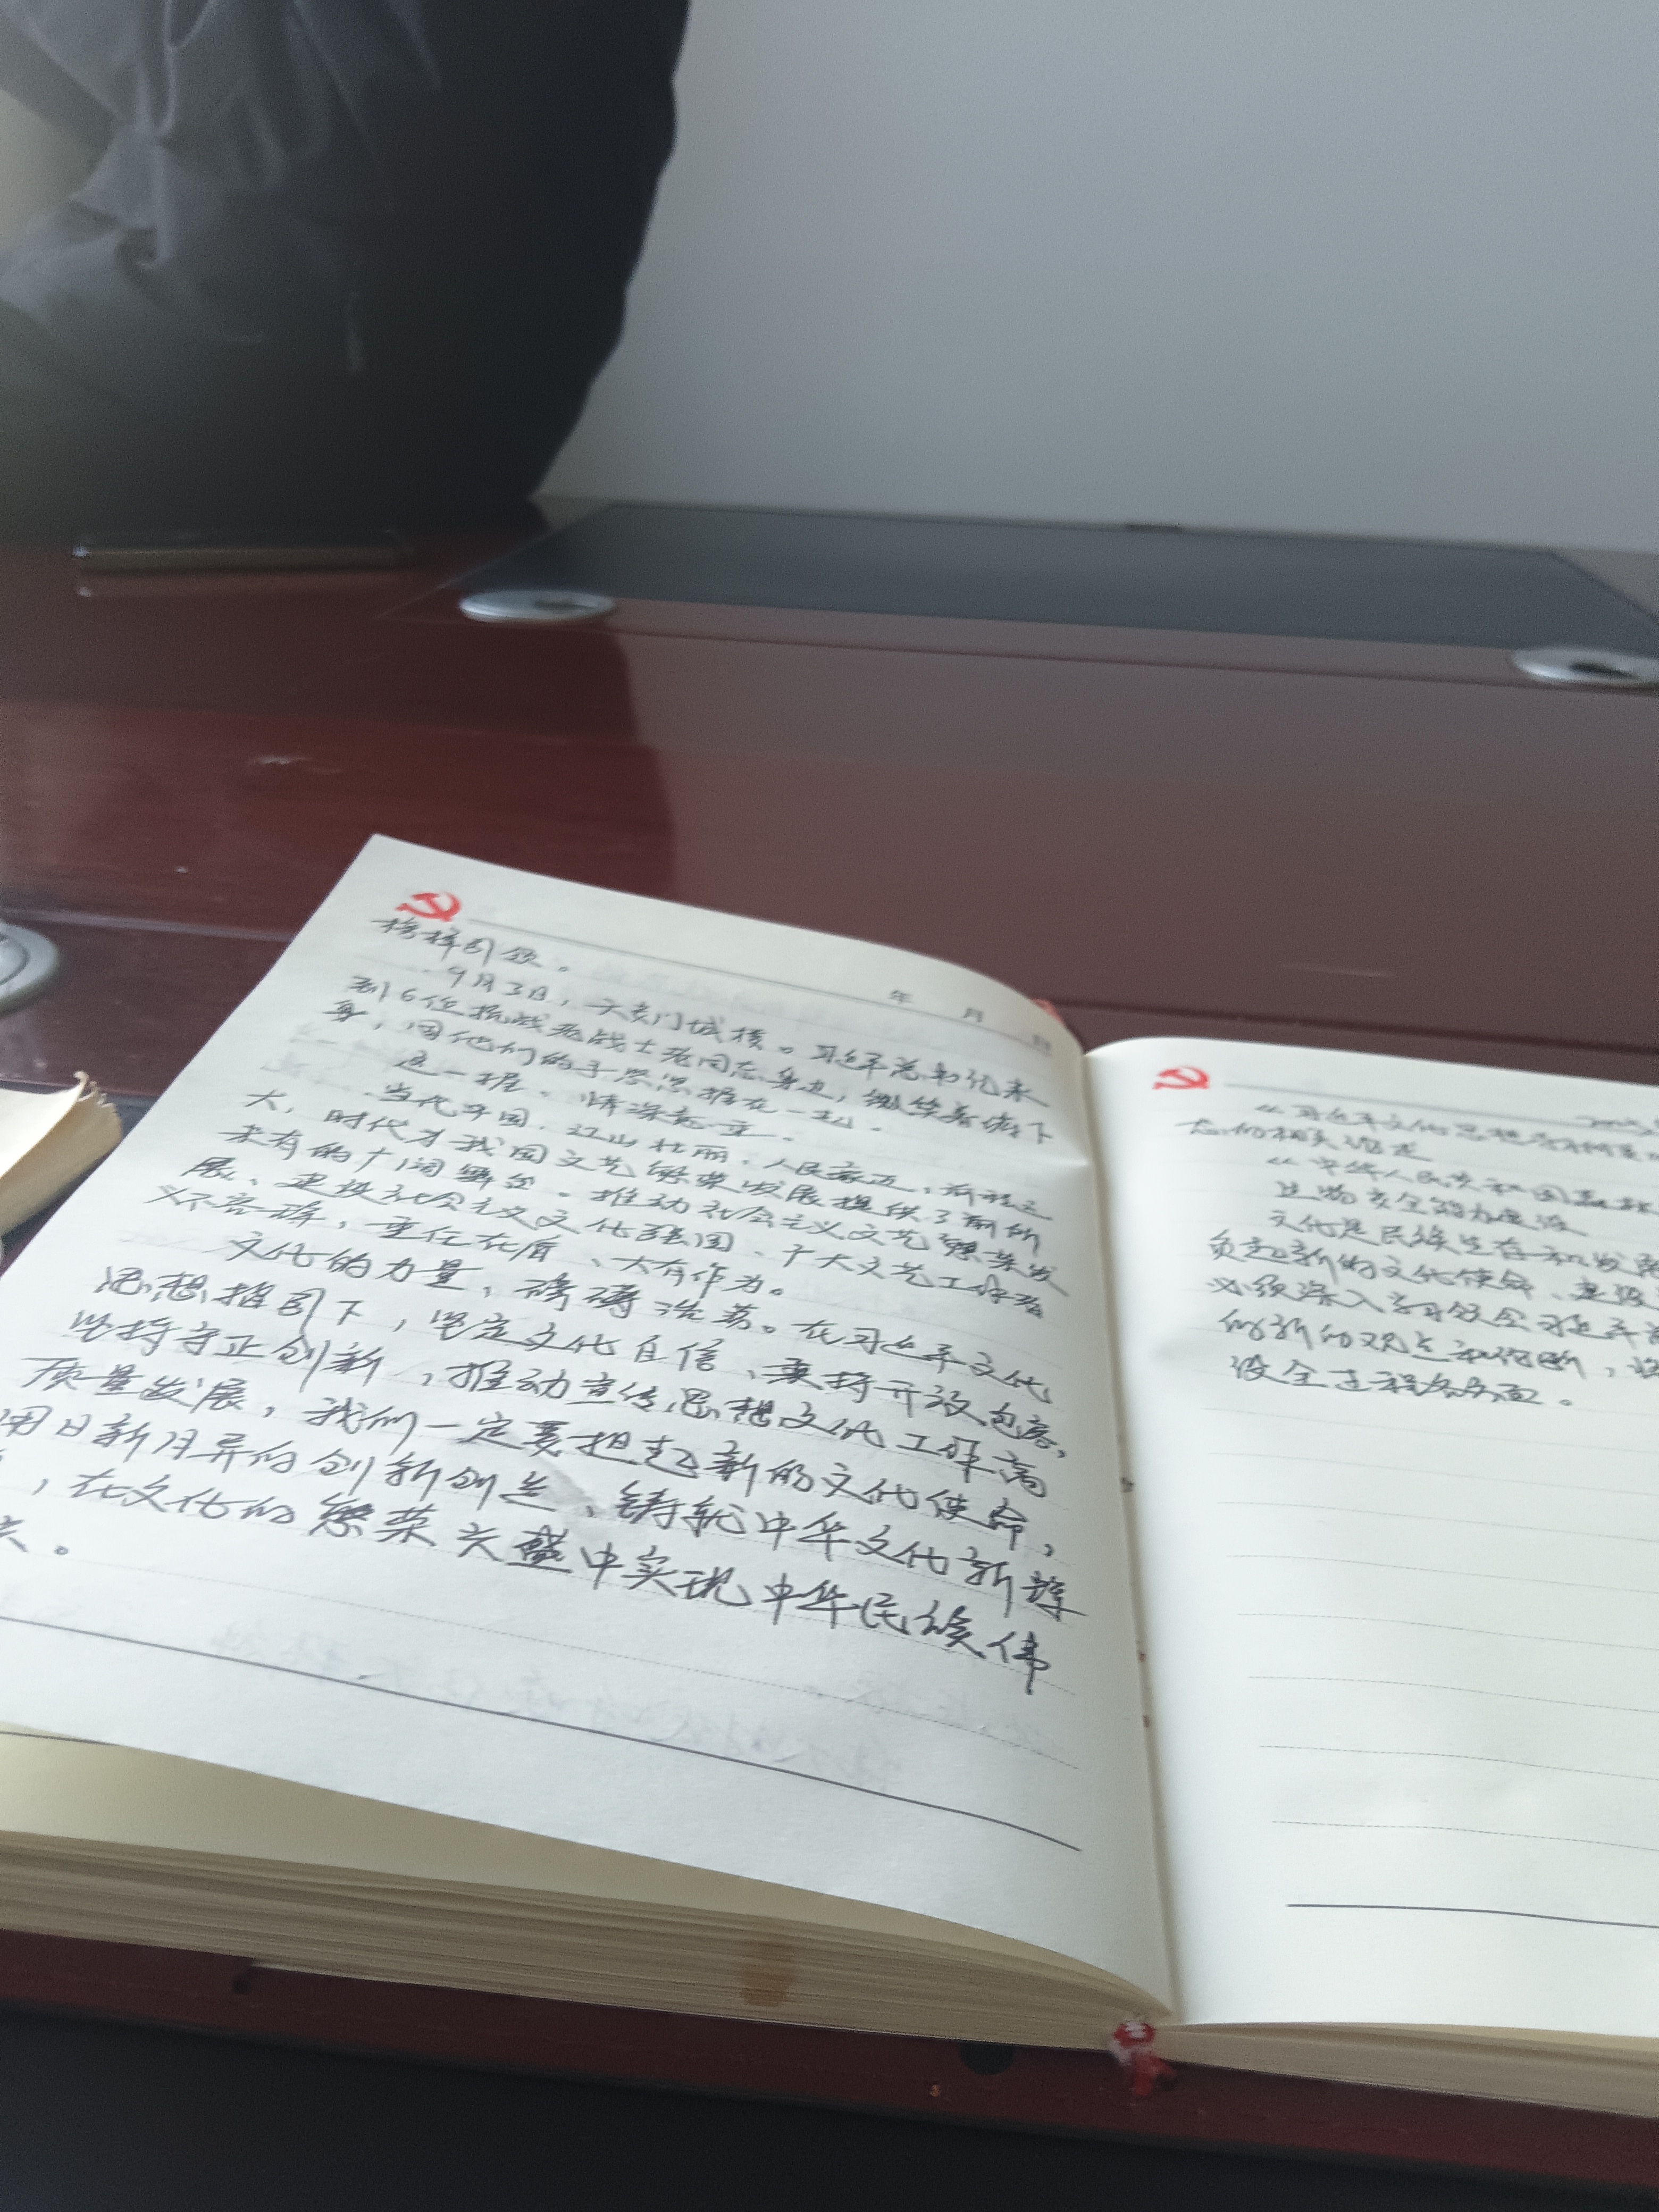 榜样引领。
年 月 日
9月3日，天安门城楼。习近平总书记来
到6位抗战老战士老同志身边，微笑着俯下
身，同他们的手紧紧握在一起。
这一握，情深意重。
当代中国，江山壮丽，人民豪迈，前程远
大，时代为我国文艺繁荣发展提供了前所
未有的广阔舞台。推动社会主义文艺繁荣发
展、建设社会主义文化强国，广大文艺工作者
义不容辞，重任在肩、大有作为。
文化的力量，磅礴浩荡。在习近平文化
思想指引下，坚定文化自信、秉持开放包容，
坚持守正创新，推动宣传思想文化工作高
质量发展，我们一定要担起新的文化使命，
用日新月异的创新创造，铸就中华文化新辉
，在文化的繁荣兴盛中实现中华民族伟
兴。
《习近平文化思想
态的相关论述
《中华人民共和国
生物安全
文化是民族生存和发展
负起新的文化使命、建设
必须深入学习领会习近平
的新的观点和论断，
设全过程各方面。